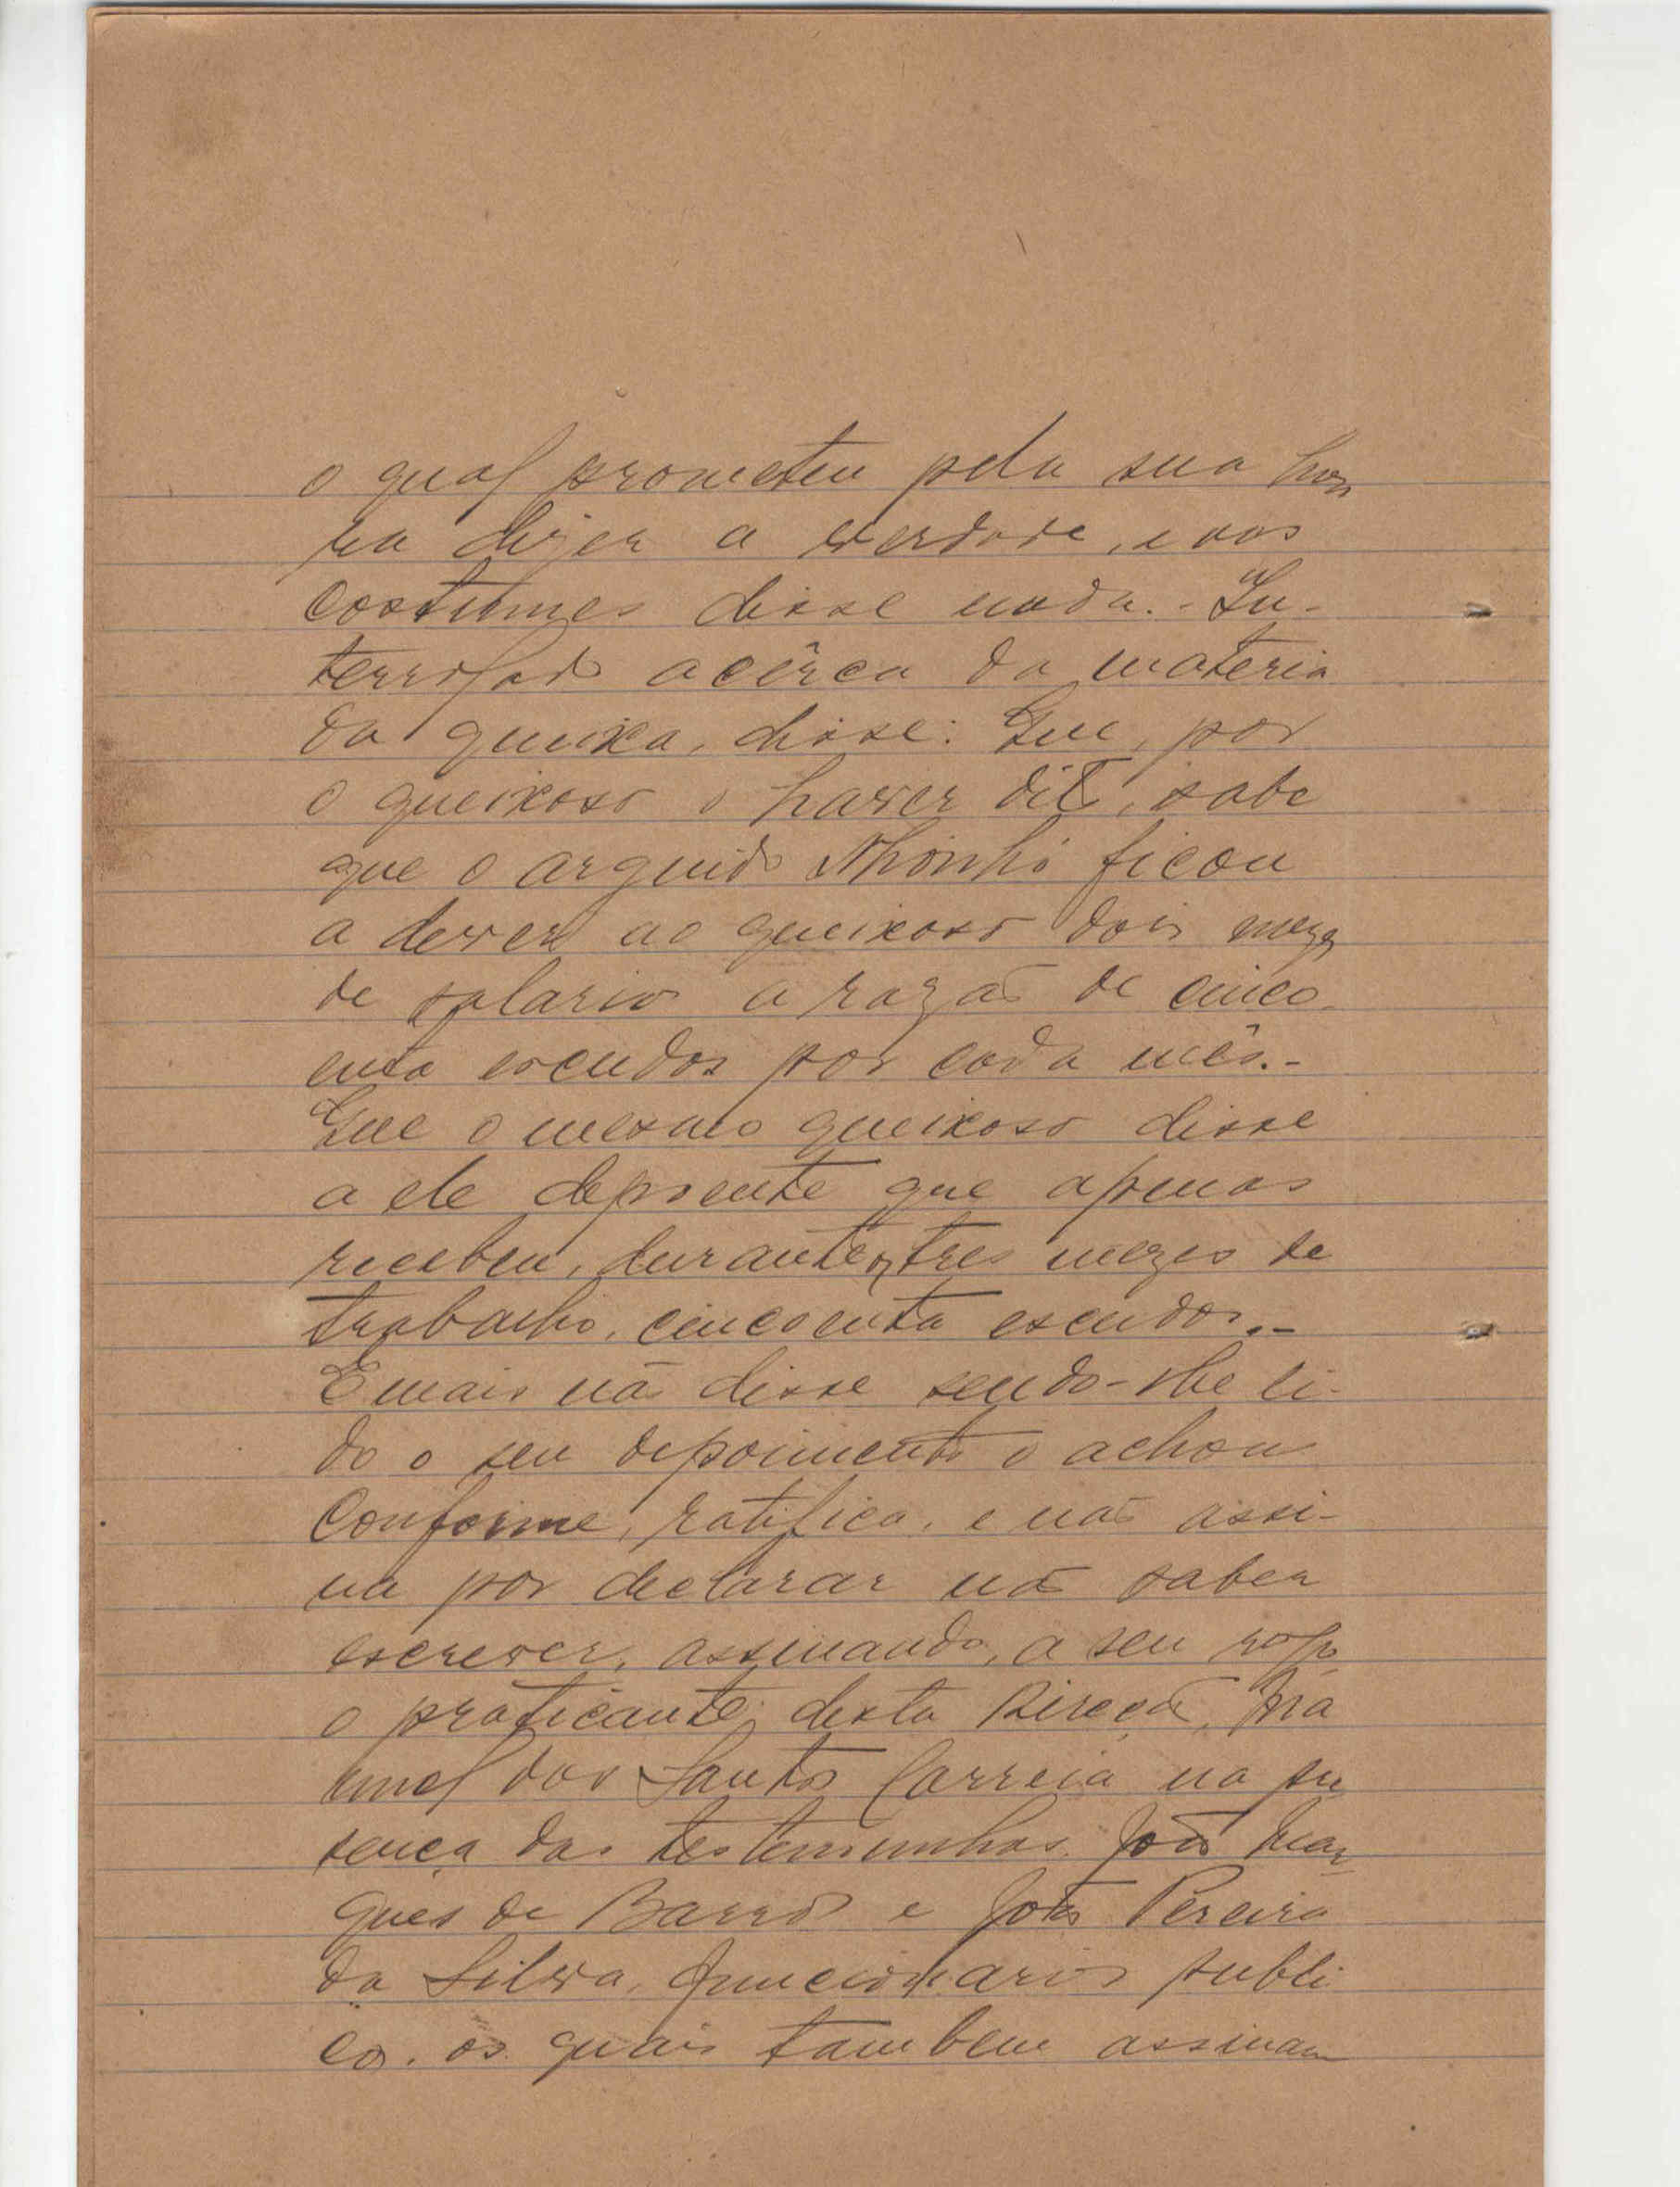 o qual prometeu pela sua hon
ra dizer a verdade, e aos
costumes disse nada. - In-
terrogado acêrca da materia
da queixa, disse: Que, por
o queixoso o haver dito, sabe
que o arguido Nhonhô ficou
a dever ao queixoso dois mezes
de salario a razão de cinco-
enta escudos por cada mês. -
Que o mesmo queixoso disse
a ele depoente que apenas
recebeu, durante os tres mezes de
trabalho, cincoenta escudos. -
E mais não disse sendo-lhe li-
do o seu depoimento o achou
conforme, ratifica, e não assi-
na por declarar não saber
escrever, assinando, a seu rogo
o praticante desta Direcção, Ma
nuel dos Santos Correia na pre
sença das testemunhas João Mar
ques de Barros e João Pereira
da Silva, funcionarios publi
cos. os quais tambem assinam